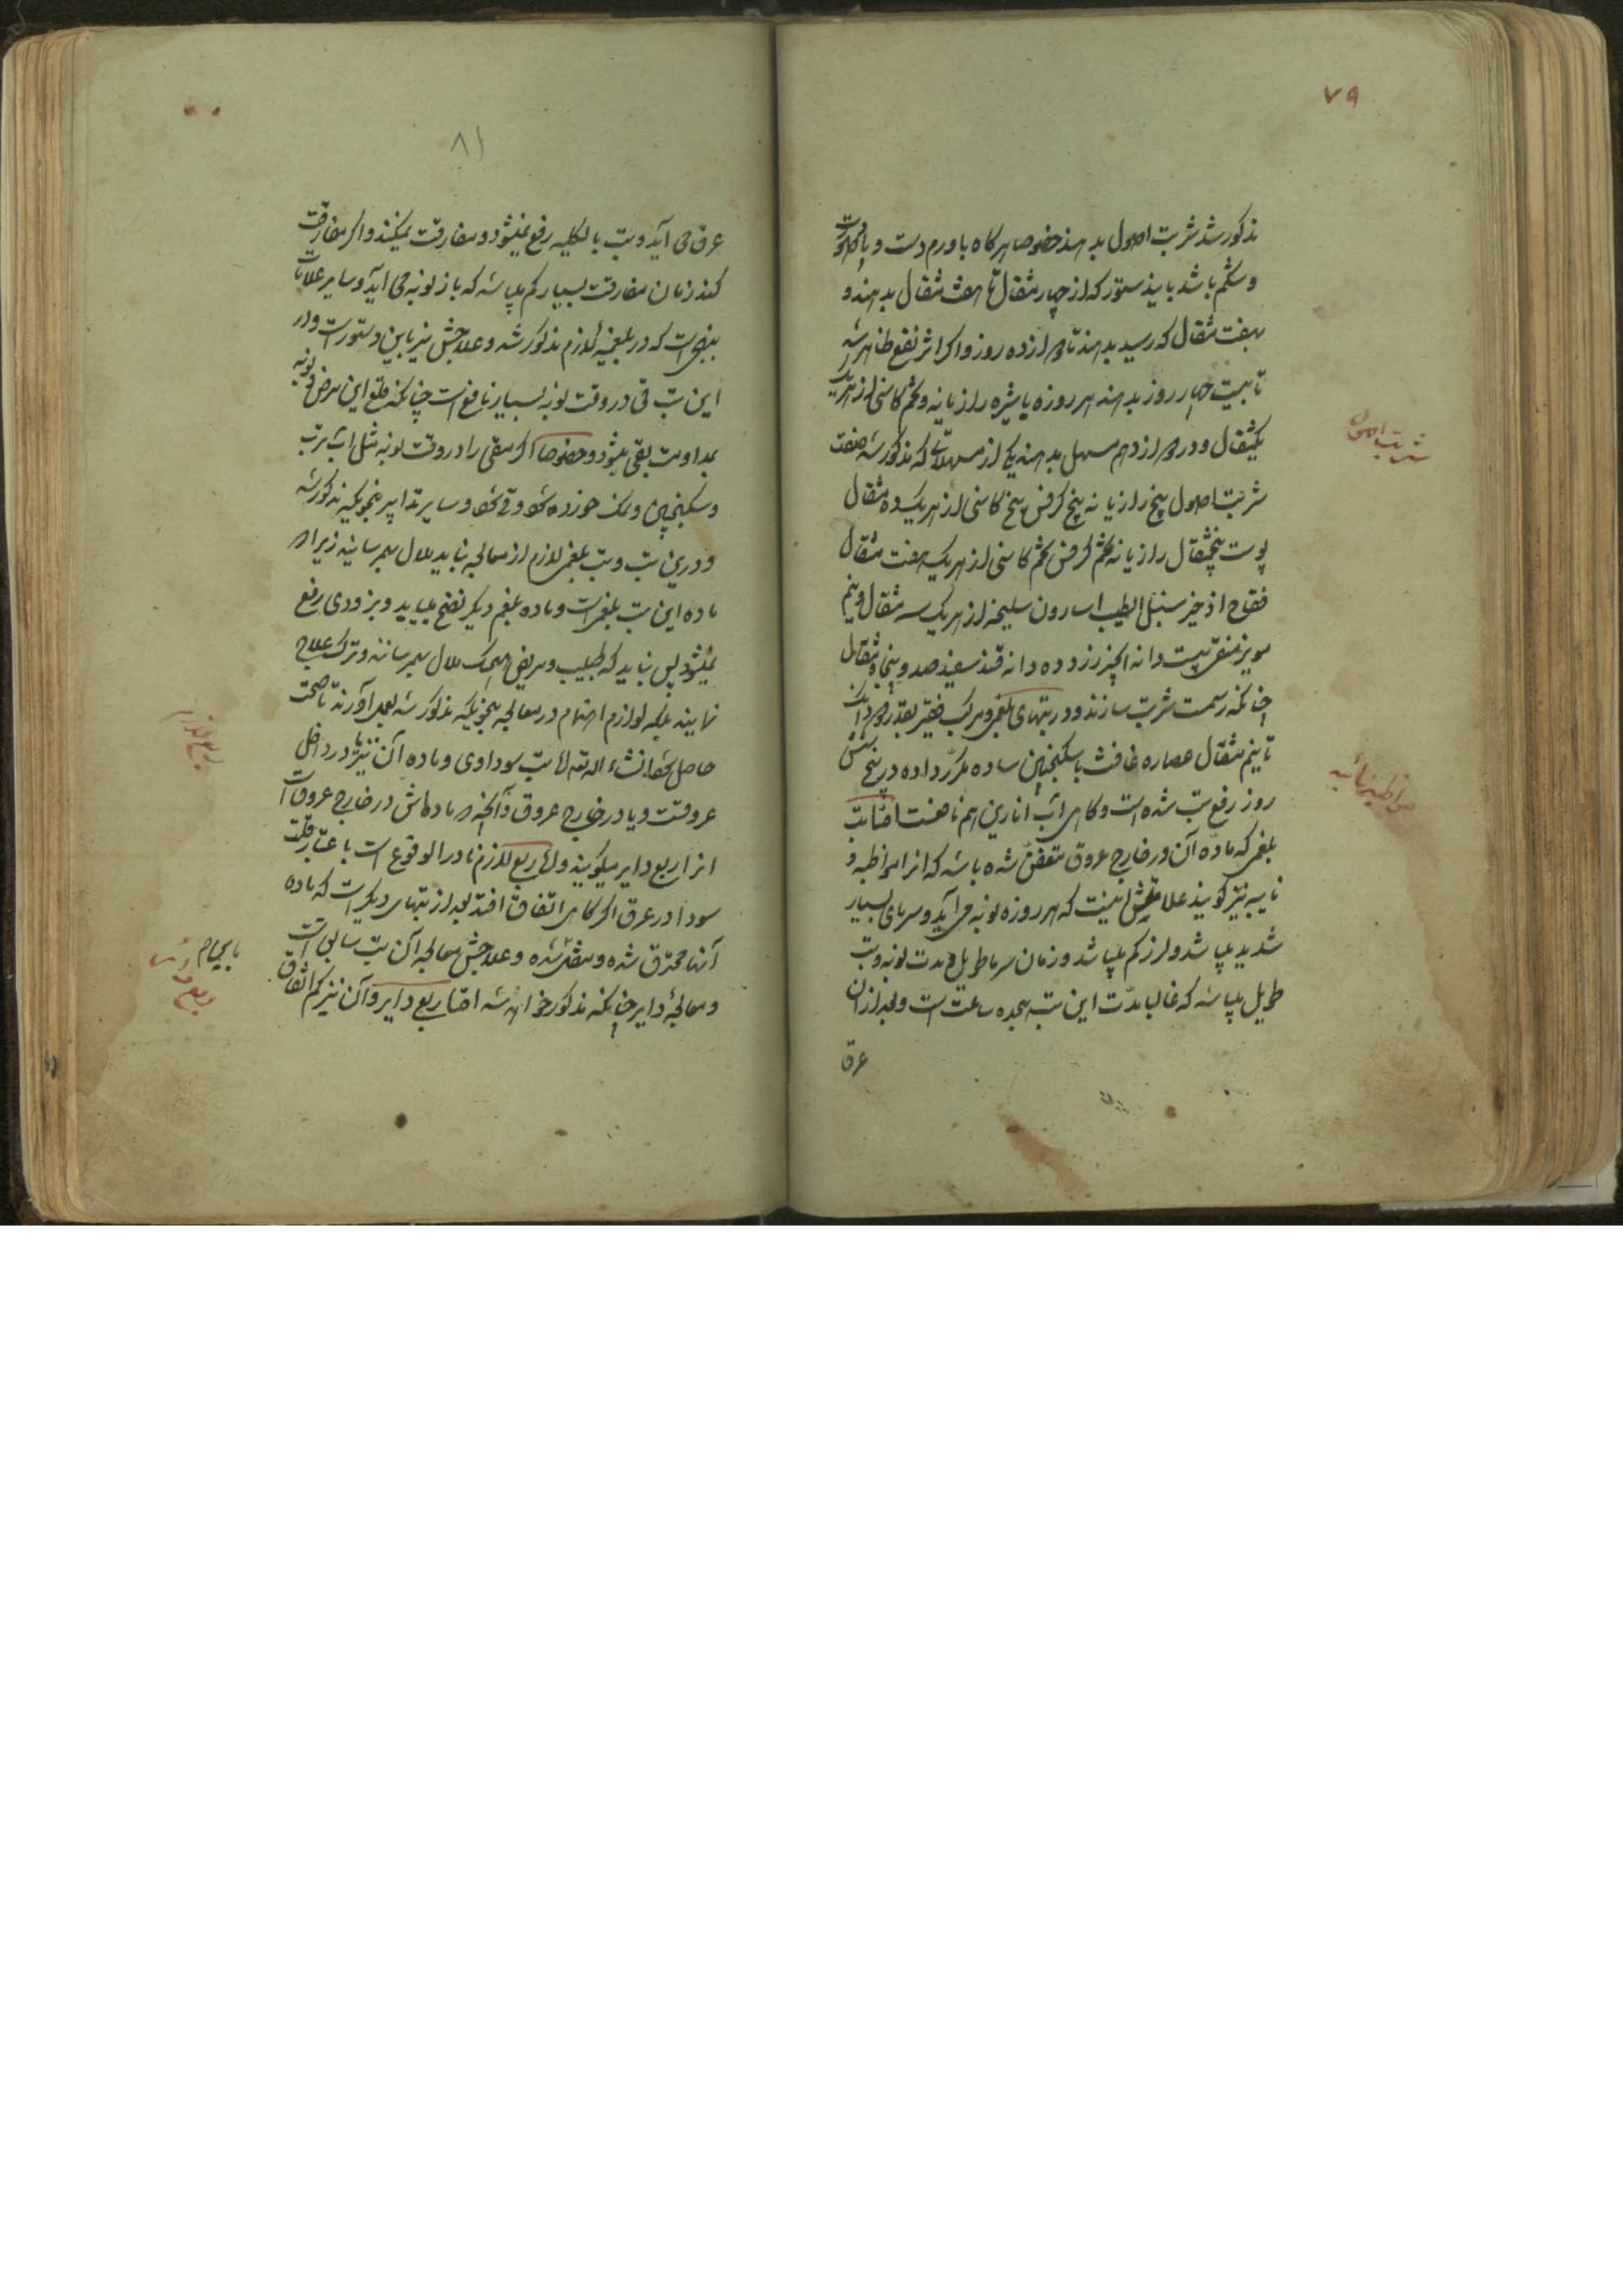 ۷۹
مذکور شد شربت اصول بدهند خصوصا هرگاه با ورم دست و پا و صورت
و شکم باشد باید دستور که از چهار مثقال تا هفت مثقال بدهند و
بهفت مثقال که رسید بدهند تا دوازده روز و اگر اثر نفع ظاهر شد
تا بیست چهار روز بدهند هر روزه با شیره رازیانه و تخم کاسنی از هر یک
یکمثقال و در دوازدهم مسهل بدهند یکی از مسهلاتی که مذکور شد صفت
شربت اصول بیخ رازیانه بیخ کرفس بیخ کاسنی از هر یک ده مثقال
پوست پنجمثقال رازیانه تخم کرفس تخم کاسنی از هر یک هفت مثقال
فقاح اذخر سنبل الطیب اسارون سلیخه از هر یک سه مثقال و نیم
مویز منقی بیست دانه انجیر زرد ده دانه قند سفید صد و پنجاه مثقال
چنانکه رسمست شربت سازند و در تبهای بلغمی و مرکب فقیر بقدر دو دانک
تا نیم مثقال عصاره غافث با سکنجبین ساده مکرر داده در پنج شش
روز رفع تب شده است و گاهی آب انارین هم نافعست اما تب
بلغمی که ماده آن در خارج عروق متعفن شده باشد که انرا مواظبه و
نایبه نیز گویند علامتش اینست که هر روزه نوبه می آید و سرمای بسیار
شدید میباشد و لرز کم میباشد و زمان سرما طویل و مدت نوبه و تب
طویل میباشد که غالبا مدت این تب هیجده ساعت است و بعد از ان
عرق
شربت اصول
مواظبه نائبه
۸۱
عرق می آید و تب بالکلیه رفع نمیشود و مفارقت نمیکند و اگر مفارقت
کند زمان مفارقت بسیار کم میباشد که باز نوبه می آید و سایر علامات
بنهجی است که در بلغمیه لازم مذکور شد و علاجش نیز باین دستور است و در
این تب قی در وقت نوبه بسیار نافع است چنانکه قلع این مرض و نوبه
بمداومت بقی میشود و خصوصا اگر مقی را در وقت نوبه مثل آب ترب
و سکنجبین و نمک خورده شود و قی شود و سایر تدابیر بنحویکه مذکور شد
و در این تب و تب بلغمی لازم از معالجه نباید ملال بهم رسانید زیرا که
ماده این تب بلغم است و ماده بلغم دیر نضج مییابد و بزودی رفع
نمیشود پس نباید که طبیب و مریض هیچیک ملال بهم رسانند و ترک علاج
نمایند بلکه لوازم اهتمام در معالجه بنحویکه مذکور شد بعمل آورند تا صحت
حاصل شود انشاء الله تعالی اما تب سوداوی و ماده آن نیز یا در داخل
عروقست و یا در خارج عروق و آنچه ماده اش در خارج عروق است
انرا ربع دایر میگویند و اما ربع لازم نادر الوقوع است باعتبار قلت
سودا در عرق اگر گاهی اتفاق افتد بعد از تبهای دیگر است که ماده
آنها محترق شده و منتقل شده و علاجش معالجه آن تب سابق است
و معالجهٔ دایر چنانکه مذکور خواهد شد اما ربع دایر و آن نیز کم اتفاق
ربع لازم
باب چهارم
ربع دائر